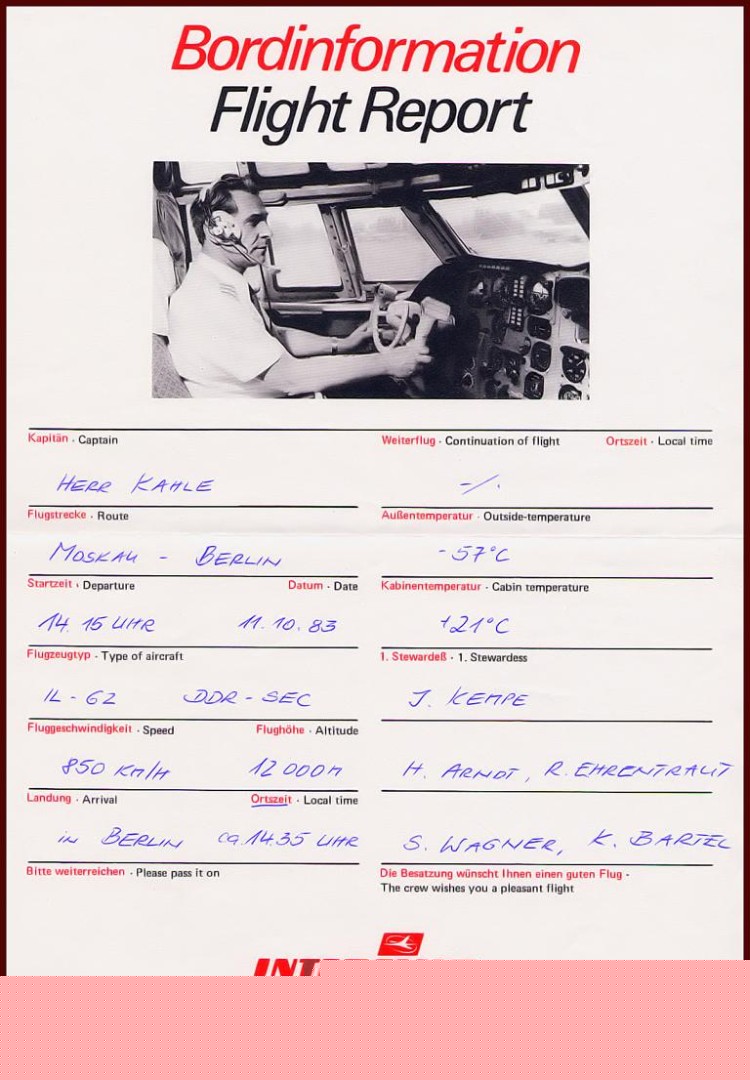 Bordinformation
Flight Report
Kapitän · Captain
HERR KAHLE
Weiterflug · Continuation of flight Ortszeit · Local time
-/.
Flugstrecke · Route
MOSKAU - BERLIN
Außentemperatur · Outside-temperature
-57°C
Startzeit · Departure Datum · Date
14.15 UHR 11.10.83
Kabinentemperatur · Cabin temperature
+21°C
Flugzeugtyp · Type of aircraft
IL-62 DDR-SEC
1. Stewardeß · 1. Stewardess
J. KEMPE
Fluggeschwindigkeit · Speed Flughöhe · Altitude
850 KM/H 12000M
H. ARNDT, R. EHRENTRAUT
Landung · Arrival Ortszeit · Local time
in BERLIN ca. 14.35 UHR
S. WAGNER, K. BARTEL
Bitte weiterreichen · Please pass it on
Die Besatzung wünscht Ihnen einen guten Flug -
The crew wishes you a pleasant flight